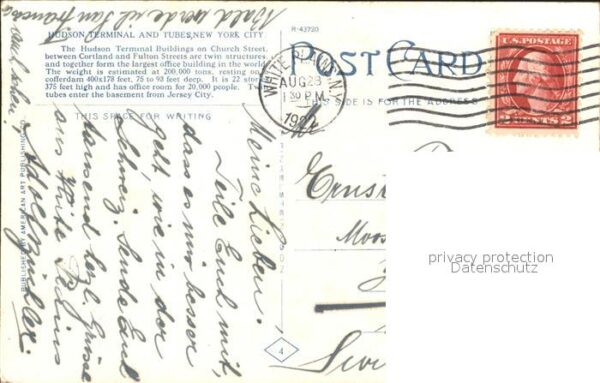 Bald werde ich San Francisco
HUDSON TERMINAL AND TUBES, NEW YORK CITY
The Hudson Terminal Buildings on Church Street,
between Cortland and Fulton Streets are twin structures,
and together form the largest office building in the world.
The weight is estimated at 200,000 tons, resting on
cofferdam 400x178 feet, 75 to 98 feet deep. It is 22 stories
375 feet high and has office room for 20,000 people. Twin
tubes enter the basement from Jersey City.
THIS SPACE FOR WRITING
PUBLISHED BY AMERICAN ART PUBLISHING CO
R-43720
POST CARD
THIS SIDE IS FOR THE ADDRESS
WHITE PLAINS, N.Y.
AUG 28
1 30 PM
192
U.S. POSTAGE
2 CENTS 2
Meine Lieben!
Teile Euch mit,
dass es mir besser
geht, wie in der
Schweiz. Sende Euch
tausend herzl. Grüsse
aus White Plains
Adolf
Ernst
Moos
4
privacy protection
Datenschutz